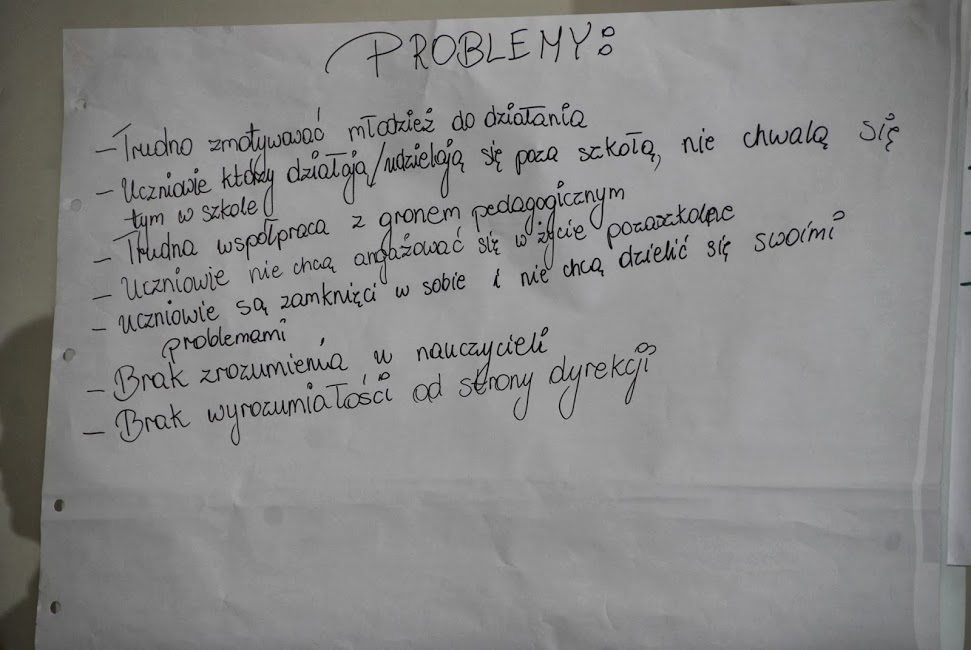 PROBLEMY:
- Trudno zmotywować młodzież do działania
- Uczniowie którzy działają/udzielają się poza szkołą, nie chwalą się
tym w szkole
- Trudna współpraca z gronem pedagogicznym
- Uczniowie nie chcą angażować się w życie pozaszkolne
- Uczniowie są zamknięci w sobie i nie chcą dzielić się swoimi
problemami
- Brak zrozumienia u nauczycieli
- Brak wyrozumiałości od strony dyrekcji